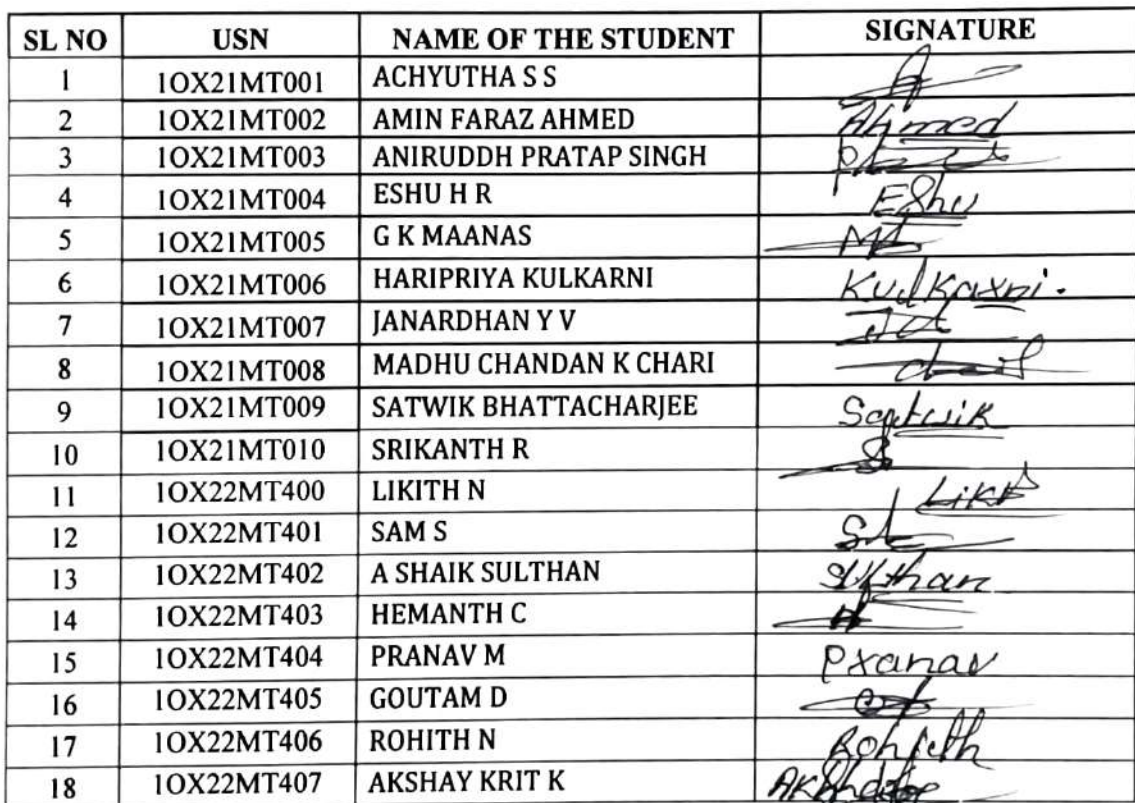 SL NO USN NAME OF THE STUDENT SIGNATURE
1 1OX21MT001 ACHYUTHA S S
2 1OX21MT002 AMIN FARAZ AHMED Ahmed
3 1OX21MT003 ANIRUDDH PRATAP SINGH
4 1OX21MT004 ESHU H R EShu
5 1OX21MT005 G K MAANAS
6 1OX21MT006 HARIPRIYA KULKARNI Kulkarni.
7 1OX21MT007 JANARDHAN Y V
8 1OX21MT008 MADHU CHANDAN K CHARI
9 1OX21MT009 SATWIK BHATTACHARJEE Satwik
10 1OX21MT010 SRIKANTH R
11 1OX22MT400 LIKITH N
12 1OX22MT401 SAM S
13 1OX22MT402 A SHAIK SULTHAN Sulthan
14 1OX22MT403 HEMANTH C
15 1OX22MT404 PRANAV M Pranav
16 1OX22MT405 GOUTAM D
17 1OX22MT406 ROHITH N Rohith
18 1OX22MT407 AKSHAY KRIT K